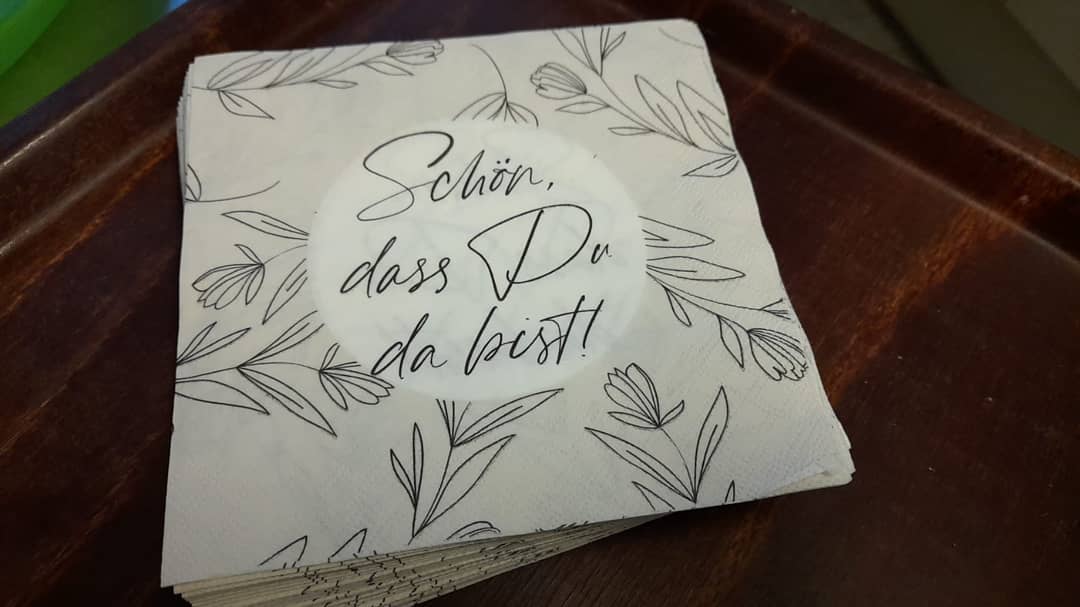 Schön,
dass Du
da bist!